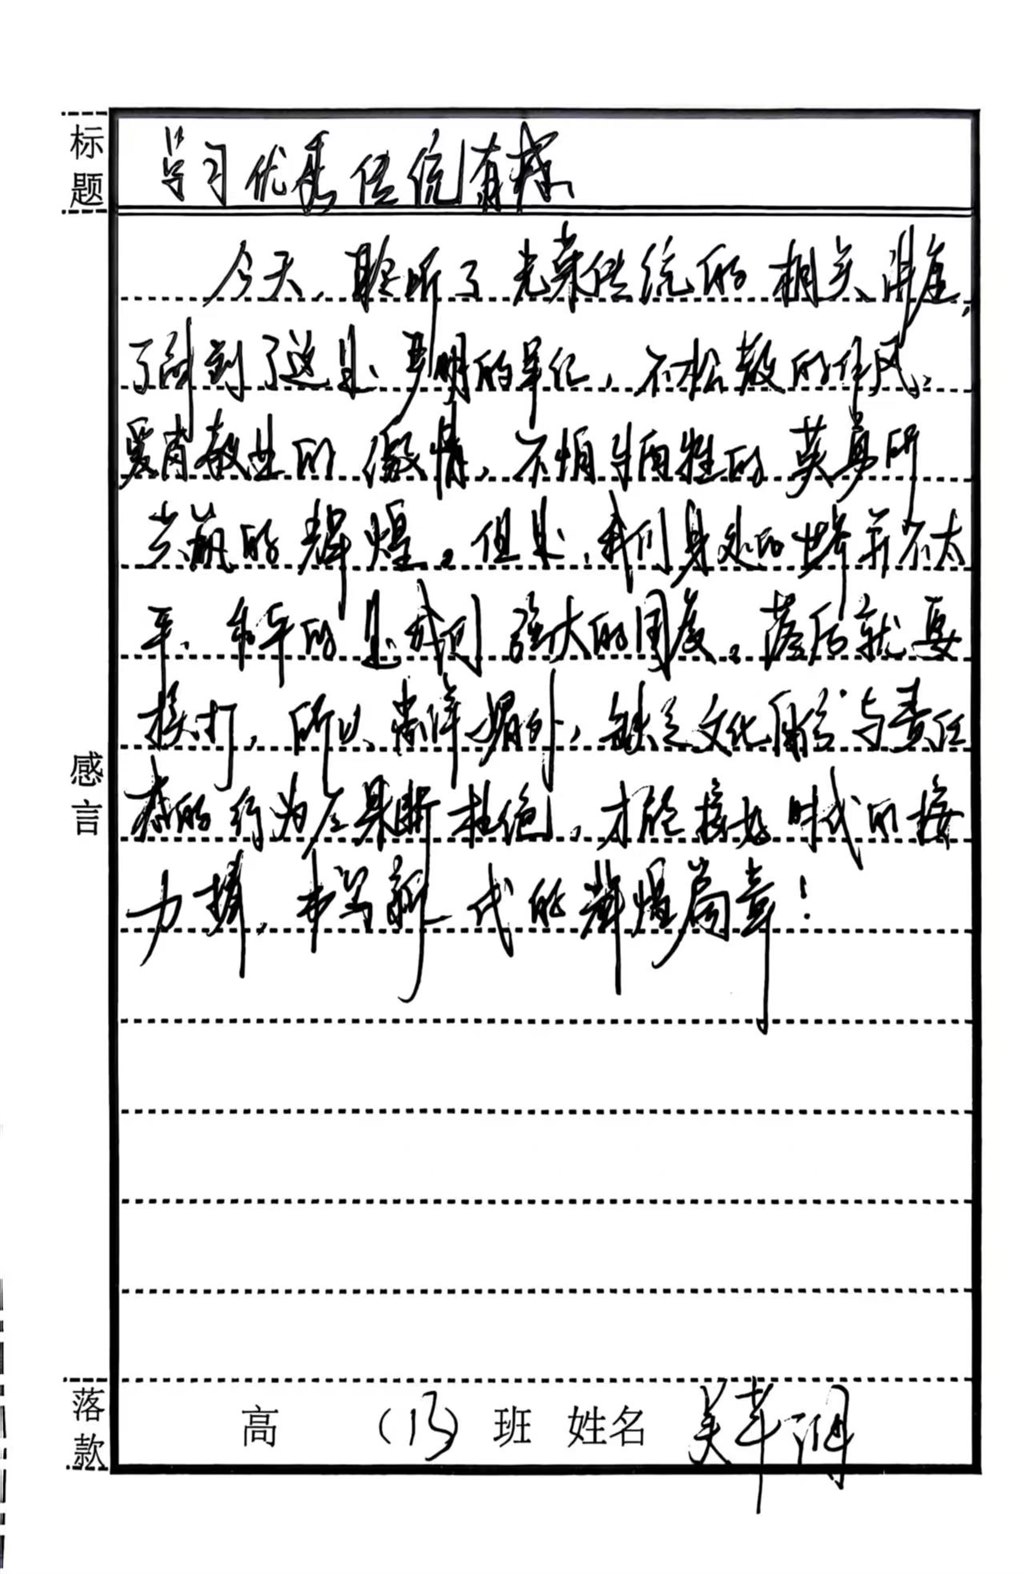 标题
学习优秀传统有感
今天，聆听了光荣传统的相关讲座，
了解到了这是严明的军纪，不松散的作风，
爱岗敬业的激情，不怕牺牲的英勇所
共筑的辉煌。但是，我们身处的世界并不太
平，和平的是我们强大的国度。落后就要
挨打，所以崇洋媚外，缺乏文化自信与责任
感的行为应果断杜绝，才能接好时代的接
力棒，书写新一代的辉煌篇章！
感言
落款
高 （13）班 姓名